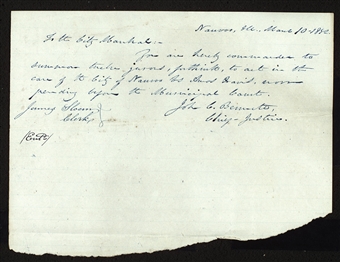 Nauvoo, Ill. March 10. 1842
To the City Marshal.—
You are hereby commanded to
summon twelve jurors, forthwith, to act in the
case of the City of Nauvoo vs Amos Davis, now
pending before the Municipal Court.
James Sloan } John C. Bennett,
Clerk } Chief Justice.